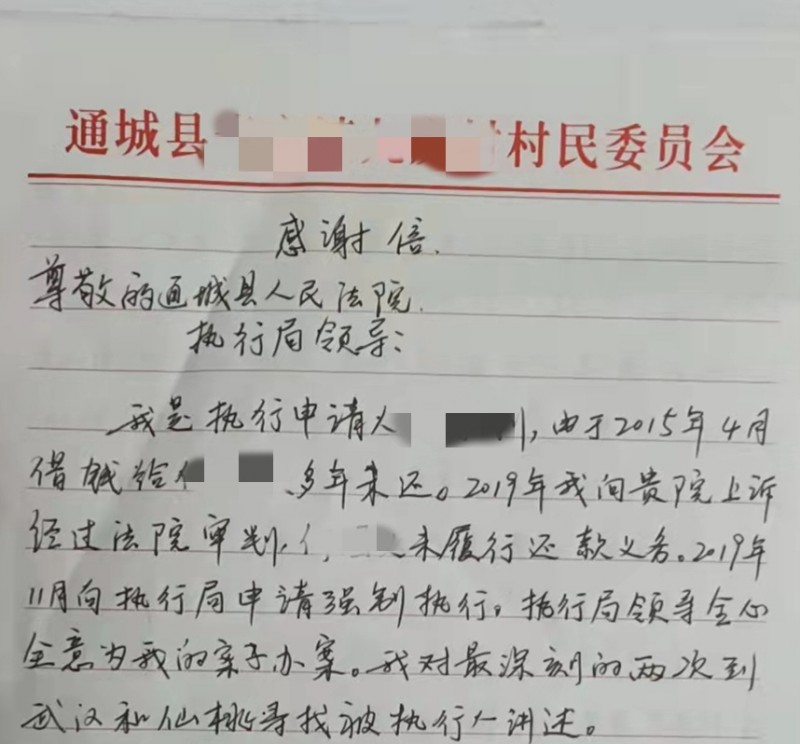 通城县 村民委员会
感谢信.
尊敬的通城县人民法院.
执行局领导:
我是执行申请人 , 由于2015年4月
借钱给 、多年未还。2019年我向贵院上诉
经过法院审判, 未履行还款义务。2019年
11月向执行局申请强制执行。执行局领导全心
全意为我的案子办案。我对最深刻的两次到
武汉和仙桃寻找被执行人讲述。